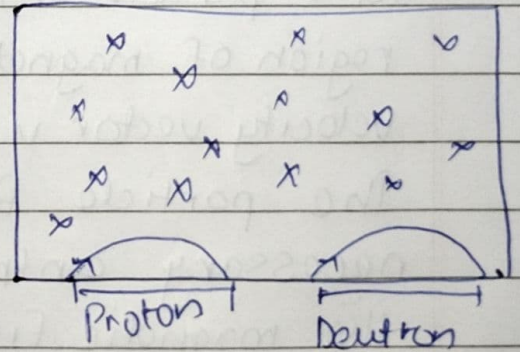 Proton
Deutron